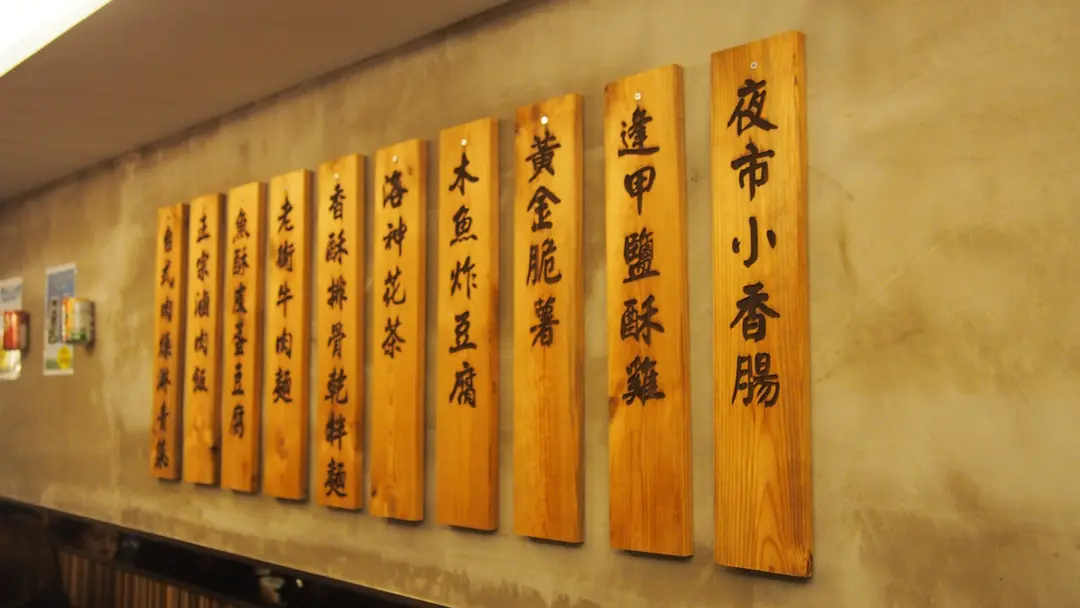 夜市小香腸
逢甲鹽酥雞
黃金脆薯
木魚炸豆腐
洛神花茶
香酥排骨乾拌麵
老街牛肉麵
魚酥皮蛋豆腐
正宗滷肉飯
台式肉燥淋青菜